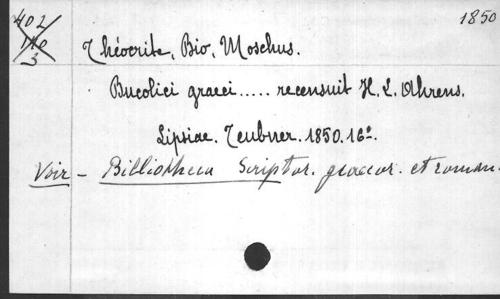 402
140
3
1850
Théocrite, Bio, Moschus.
Bucolici graeci..... recensuit H. L. Ahrens.
Lipsiae. Teubner. 1850. 16º.
Voir - Bibliotheca Scriptor. graecor. et roman.